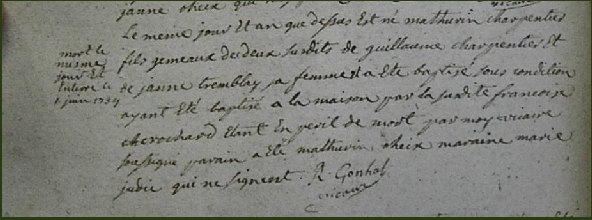 janne oheix qui ne
vicaire
Le meme jour et an que dessus Est né mathurin charpentier
fils gemeaux des deux susdits de guillaume charpentier Et
de janne tremblay sa femme Et a Eté baptisé sous condition
ayant Eté baptisé a la maison par la susdite francoise
cherochard Etant En peril de mort par moy vicaire
soussigné parain a Eté mathurin oheix maraine marie
judic qui ne signent. R. Gonhol
vicaire
mort le
mesme
jour Et
Enteré le
juin 1734